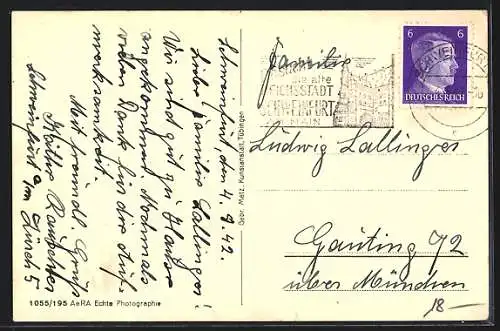 Schweinfurt, den 4.9.42.
Liebe Familie Lallinger!
Wir sind gut zu Hause
angekommen. Nochmals
vielen Dank für die Auf-
merksamkeit.
Mit freundl. Gruß
Schweinfurt a/M
1055/195 AeRA Echte Photographie
Gebr. Metz, Kunstanstalt, Tübingen
Familie
Ludwig Lallinger
Gauting 72
über München
18–
die alte
REICHSSTADT
SCHWEINFURT
MAIN
SCHWEINFURT
6 6
DEUTSCHES REICH